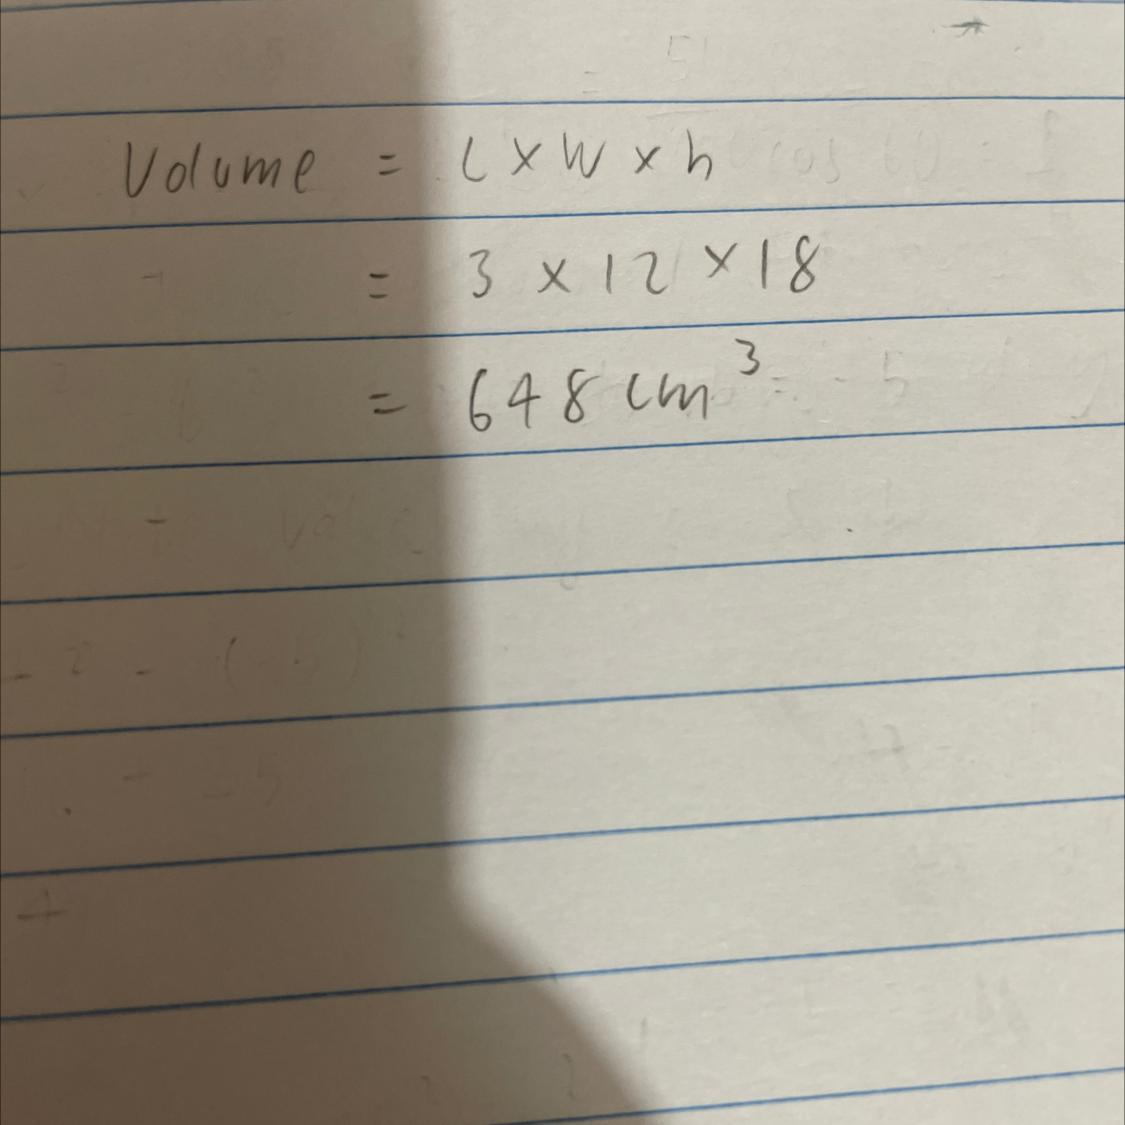 Volume = L × W × h
= 3 × 12 × 18
= 648 cm³